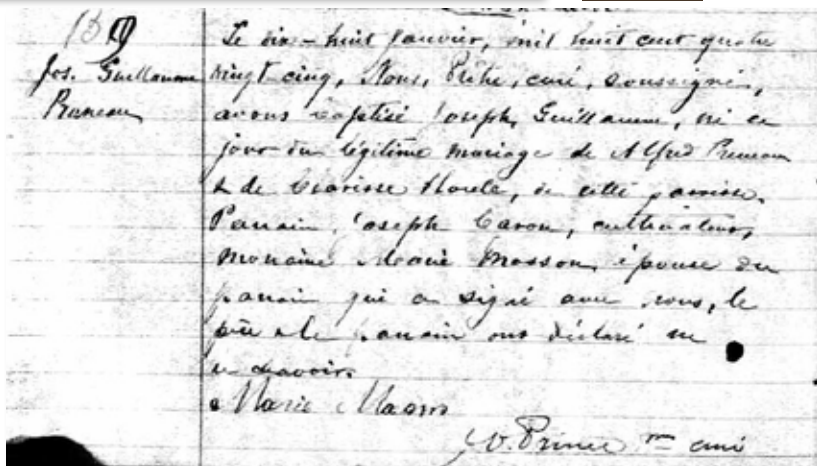 B 9
Jos. Guillaume
Pruneau
Le dix-huit janvier, mil huit cent quatre
vingt cinq, Nous, Prêtre, curé, soussigné,
avons baptisé Joseph, Guillaume, né ce
jour du légitime mariage de Alfred Pruneau
& de Clarisse Houle, de cette paroisse.
Parrain, Joseph Caron, cultivateur,
marraine Marie Masson, épouse du
parrain qui a signé avec nous, le
père & le parrain ont déclaré ne
le savoir.
Marie Mason
Prince curé